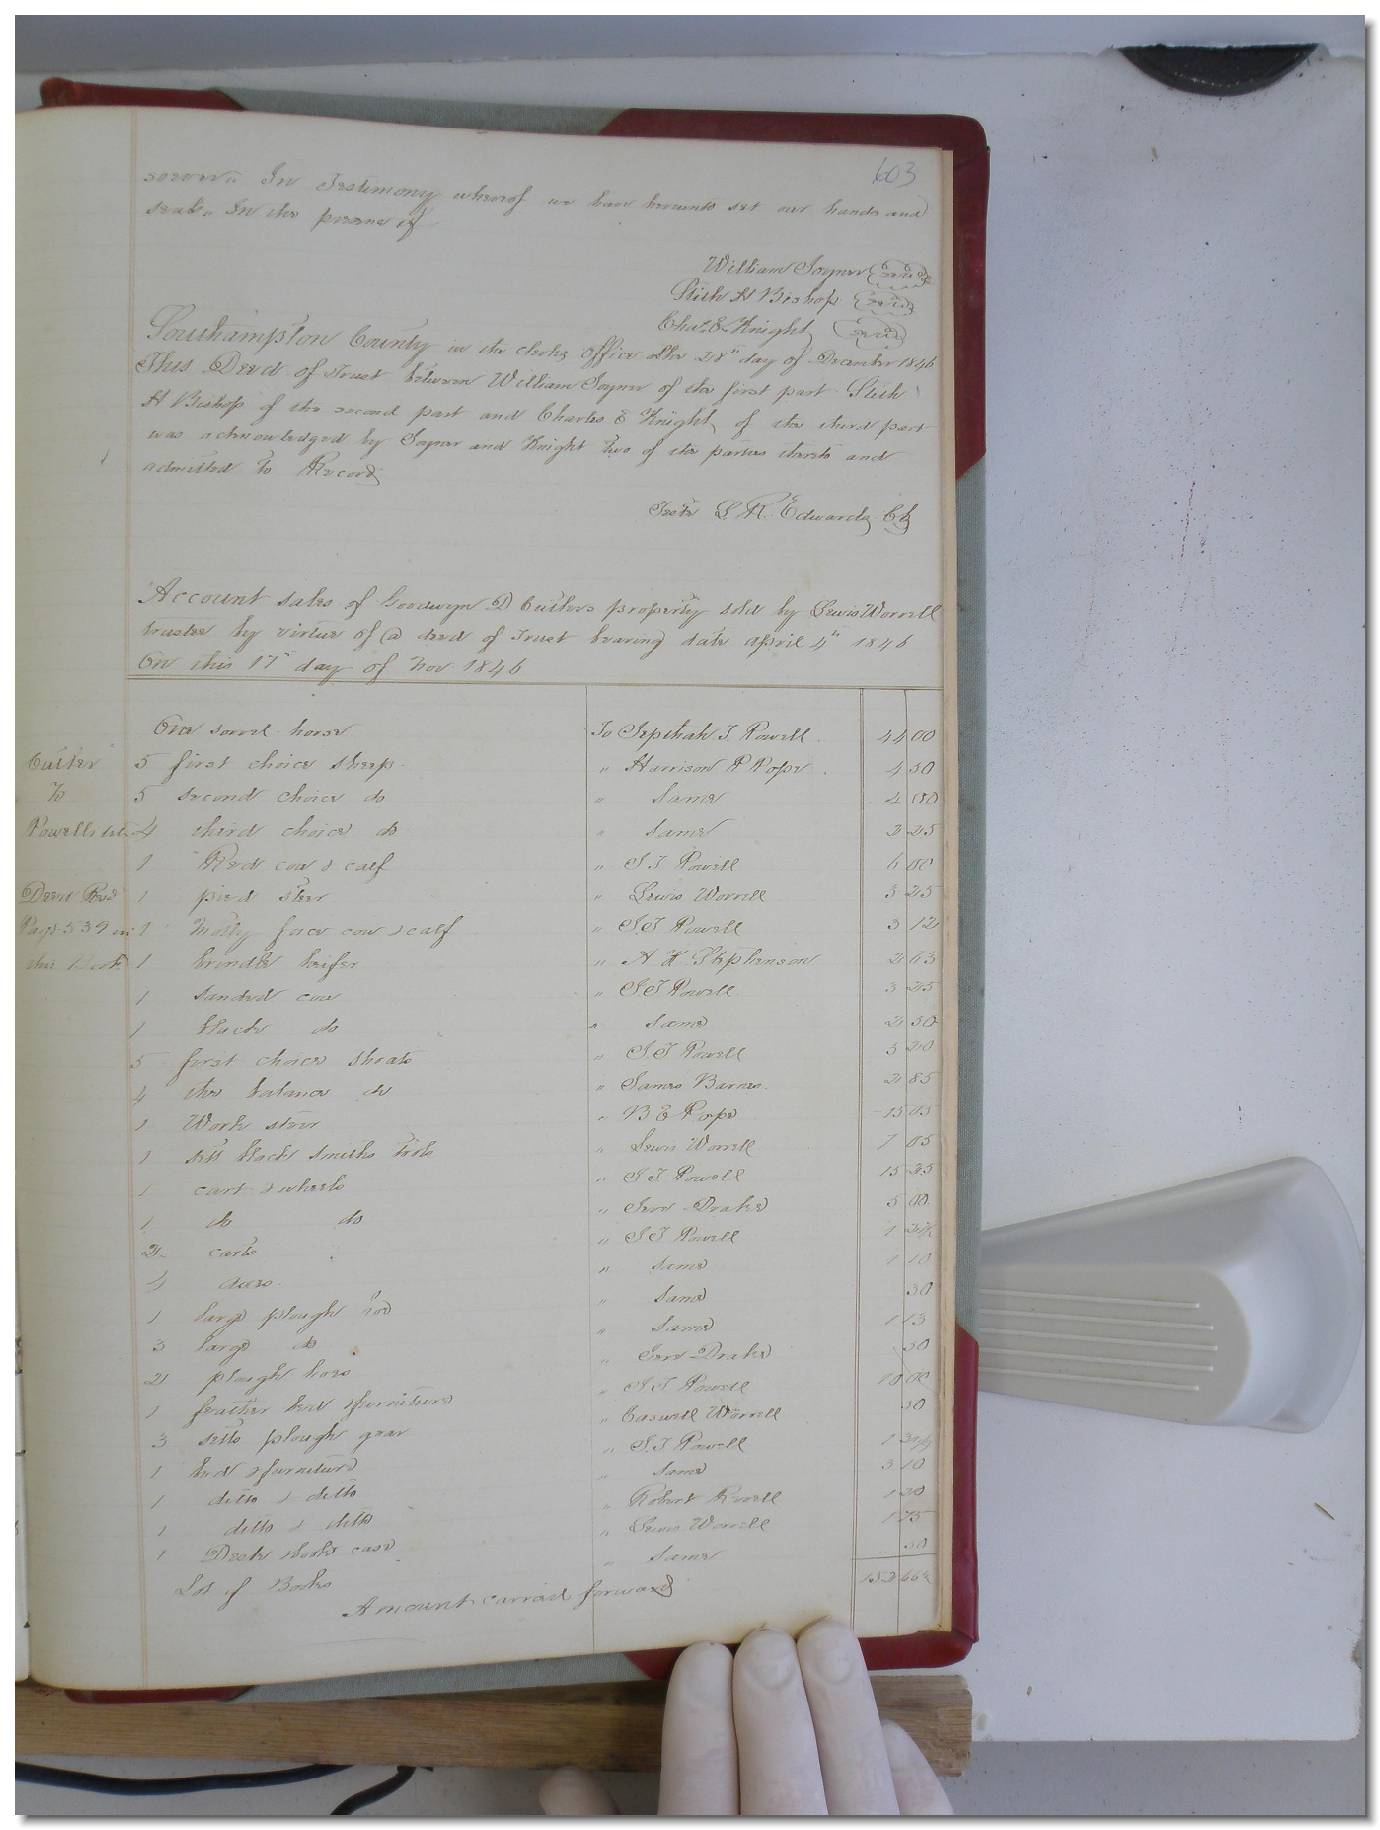 603
In Testimony whereof we have hereunto set our hands and
seals. In the presence of
William Joyner (seal)
Stith H Bishop (seal)
Chas. E. Knight (seal)
Southampton County in the clerks office the 28th day of December 1846
This Deed of Trust between William Joyner of the first part Stith
H Bishop of the second part and Charles E Knight of the third part
was acknowledged by Joyner and Knight two of the parties thereto and
admitted to Record
Teste L R. Edwards Ck
Account sales of Goodwyn D Cutlers property sold by Lewis Worrell
trustee by virtue of a deed of Trust bearing date april 4th 1846
On this 17th day of Nov 1846
One sorrel horse To Jepthah T Powell 44 00
Cutler
To
Powells
Deed
Page 539 in
this Book
5 first choice sheep " Harrison P Pope 4 50
5 second choice do " same 4 00
4 third choice do " same 2 25
1 Red cow & calf " J T Powell 6 00
1 pied steer " Lewis Worrell 3 25
1 face cow & calf " J.T Powell 3 12
1 brindle heifer " A H Stephenson 2 63
1 sanded cow " J T Powell 3 25
1 black do " same 2 50
5 first choice shoats " J.T Powell 5 20
4 the balance do " James Barnes 2 85
1 Work steer " B E Pope 15 05
1 sett black smiths tools " Lewis Worrell 7 05
1 cart & wheels " J T Powell 15 25
1 do do " Drake 5 00
2 carts " J T Powell 1
4 axes " same 1 10
1 large plough hoe " same 30
3 large do " same 1 13
2 plough hoes " Drake 50
1 feather bed & furniture " J T Powell 10 00
3 setts plough gear " Caswell Worrell 50
1 bed & furniture " J.T Powell 1
1 ditto & ditto " same 3 10
1 ditto & ditto " Robert 1 20
1 Desk & book case " Lewis Worrell 1 75
Lot of Books " same 50
Amount carried forward 152 66½